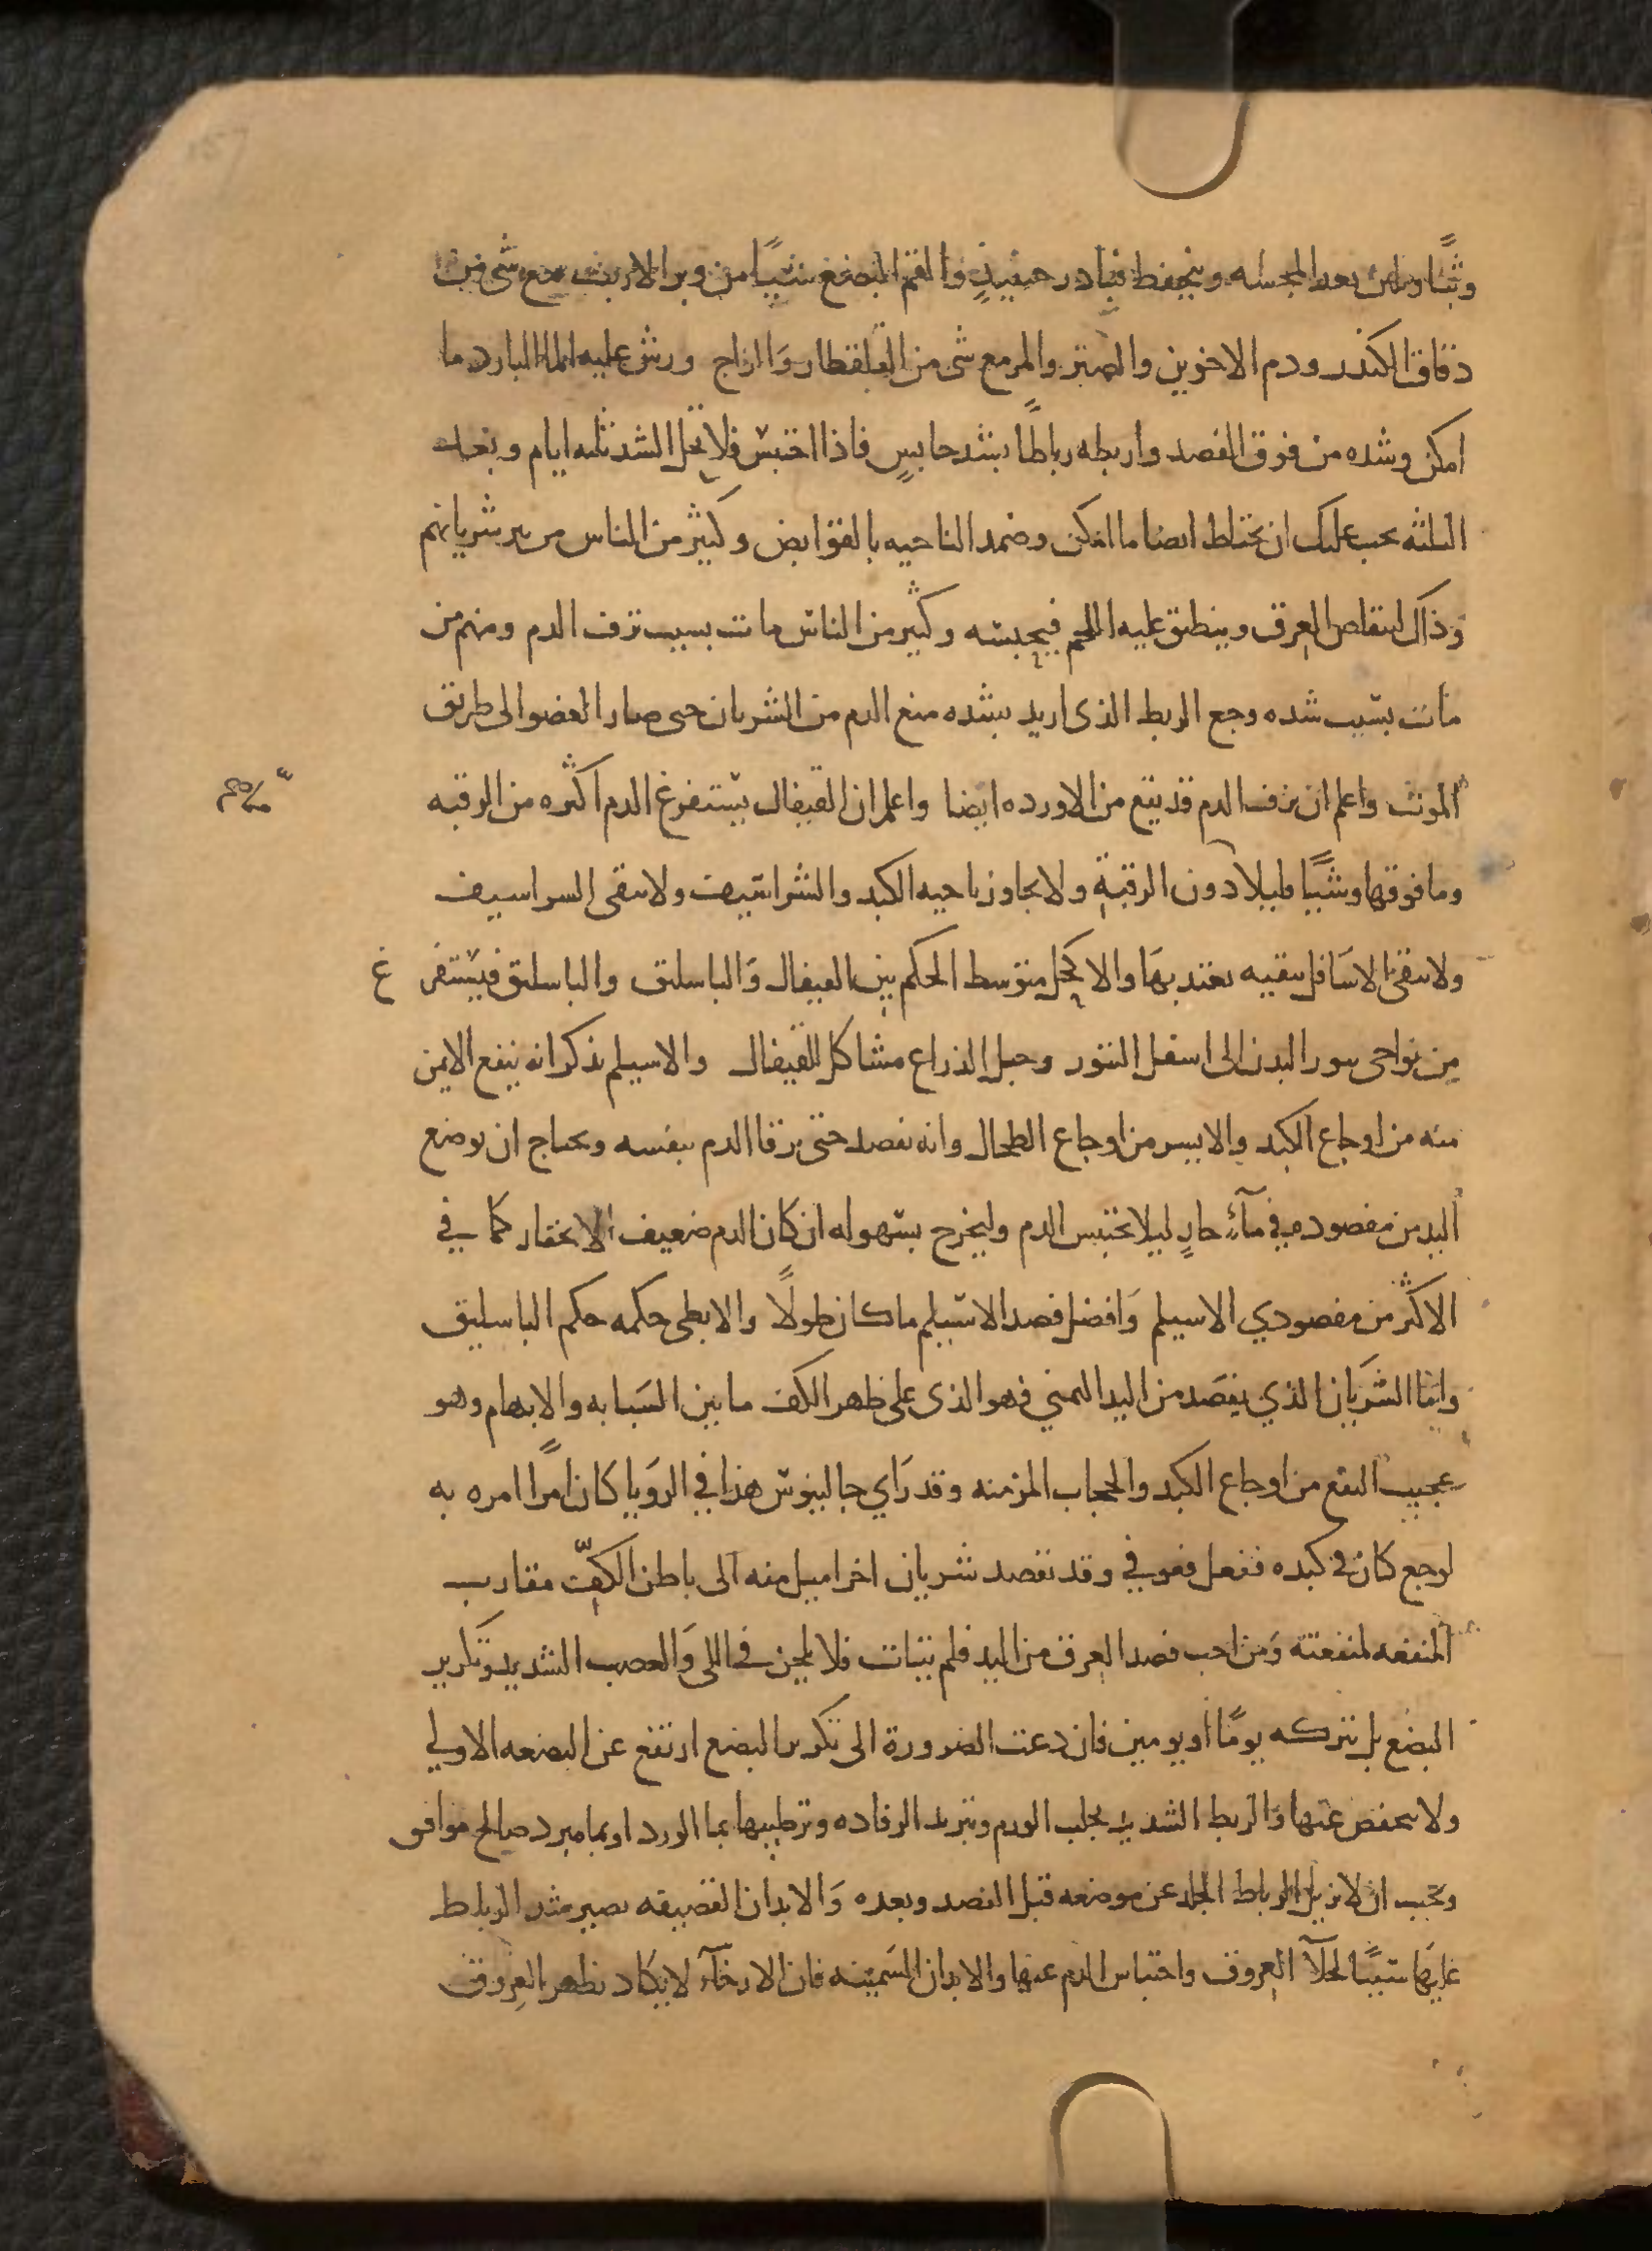 وثبًا ويلين بعد المجسه وينخفظ فبادر حينيذٍ والقم المبضع شيًا من وبر الارنب مع شى من
دقاق الكندر ودم الاخوين والصبر والمر مع شى من القلقطار وَالزاج ورش عليه الماالبارد ما
امكن وشده من فوق الفصد واربطه رباطًا بشد حابسٍ فاذا احتبسَ فلا تحل الشد ثلثه ايام وبعد
الثلثه يجب عليك ان تحتاط ايضا ما امكن وضمد الناحيه بالقوابض وكثير من الناس من يبر شريانهم
وَذاك ليتقلص العرق وينطبق عليه اللحم فيحبسَه وكثير من الناسَ مات بسبب نزف الدم ومنهم من
مات بسَبب شده وجع الربط الذى اريد بشده منع الدم من الشريان حتى صار العضو الى طريق
الموت واعلم ان نزف الدم قد يقع من الاورده ايضا واعلم ان القيفال يستفرغ الدم اكثره من الرقبه
وما فوقها وشيًا قليلا دون الرقبة ولا يجاوز ناحيه الكبد والشراسَيف ولا ينقى السراسيف
ولا ينقى الاسَافل تنقيه يعتد بهَا والاكحل متوسط الحكم بين القيفال وَالباسليق والباسليق فيستفرغ
من نواحى سور البدن الى اسفل التنور وحبل الذراع مشاكل للقيفال والاسيلم يذكر انه ينفع الايمن
منه من اوجاع الكبد والايسر من اوجاع الطحال وانه يفصد حتى يرقا الدم بنفسه ويحتاج ان يوضع
اليد من مفصوده في مآءٍ حارٍ ليلا يحتبس الدم وليخرج بسَهوله ان كان الدم ضعيف الانحدار كما في
الاكثر من مفصودي الاسيلم وَافضل فصد الاسَيلم ما كان طولًا والابطى حكمه حكم الباسليق
وامَا الشريَان الذي يفصَد من اليد اليمني فهو الذى على ظهر الكف ما بين السَبابه والابهام وهو
عجيب النفع من اوجاع الكبد والحجاب المزمنه وقد رَاي جالينوسَ هذا في الروَيا كان امرًا امره به
لوجع كان في كبده ففعل فعوفي وقد يفصد شريان اخر اميل منه الى باطن الكفّ مقارب
المنفعه لمنفعته وَمن احب فصد العرق من اليد فلم يتات فلا يلحن في اللى وَالعصب الشديد وتَكرير
البضع بل يتركه يومًا او يومين فان دعت الضرورة الى تكرير البضع ارتفع عن البضعه الاولي
ولا ينخفض عنها وَالربط الشديد يجلب الورم وتبريد الرفاده وترطيبها بما الورد او بما مبرد صالح موافق
ويجب ان لا يزيل الرباط الجلد عن موضعه قبل الفصد وبعده وَالابدان القضيفه يصير شد الرباط
عليهَا سَببًا لخلآ العروق واحتباس الدم عنها والابدان السَمينه فان الارخآء لا يكاد يظهر العروق